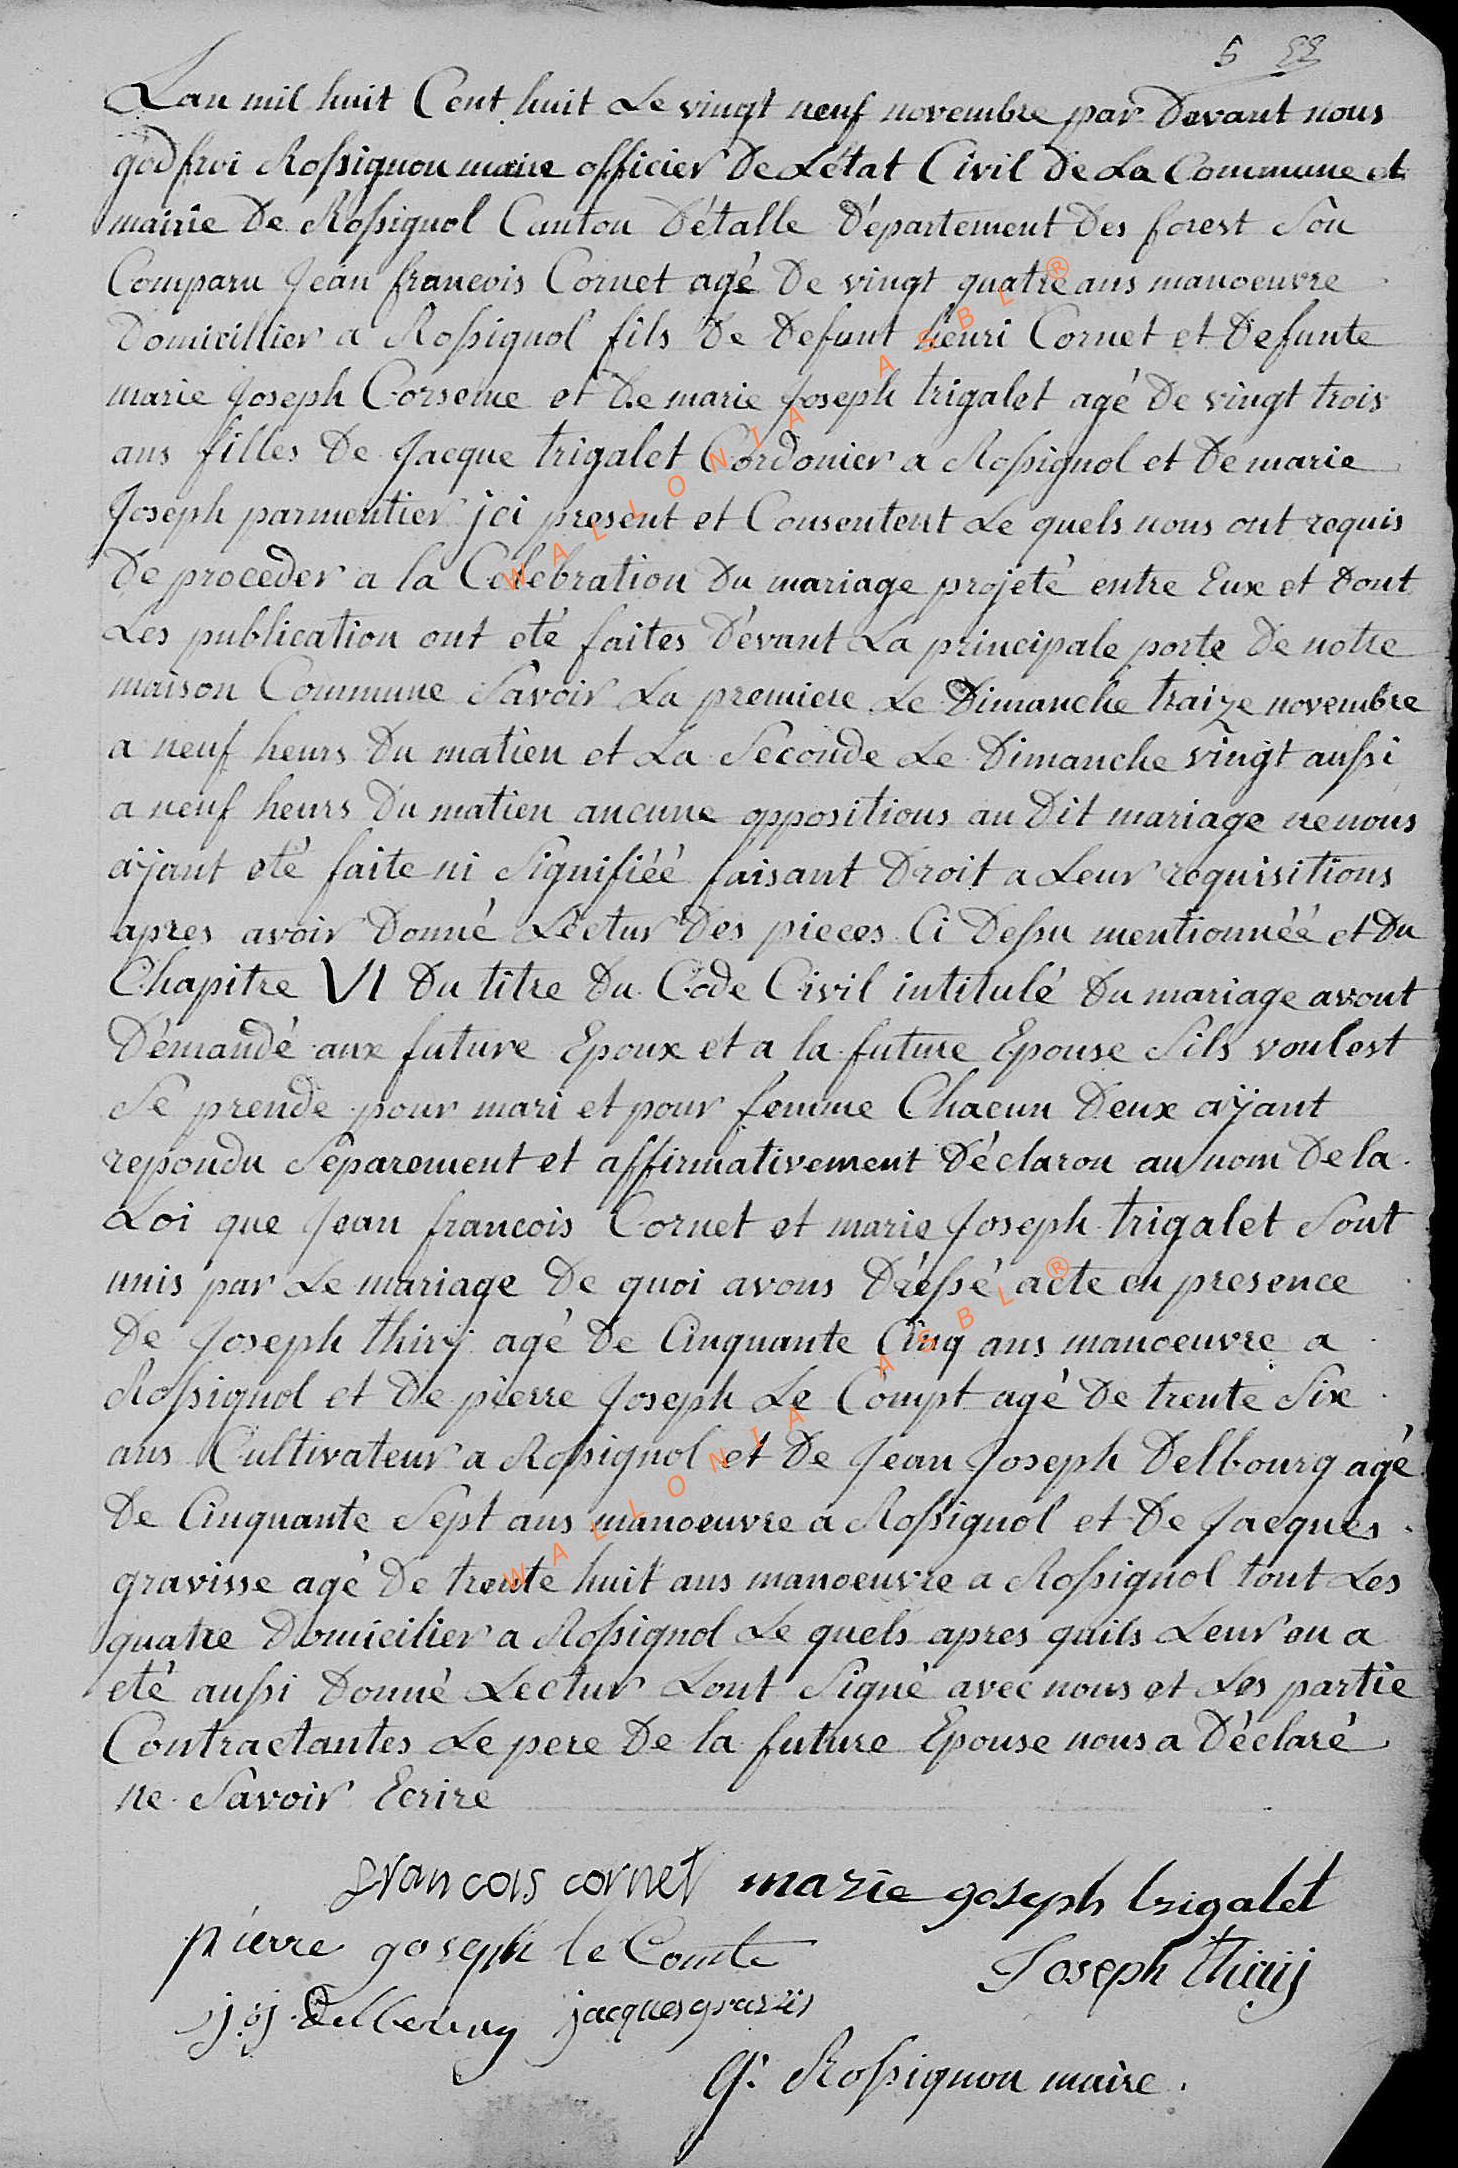 5 22
Lan mil huit Cent huit Le vingt neuf novembre par Devant nous
godfroi Rossignon maire officier De Létat Civil de La Commune et
mairie De Rossignol Canton D'étalle Département Des forest Son
Comparu Jean francois Cornet agé De vingt quatre ans manoeuvre
Domicillier a Rossignol fils De Defunt henri Cornet et Defunte
marie Joseph Corseme et De marie Joseph trigalet agé De vingt trois
ans filles De Jacque trigalet Cordonier a Rossignol et De marie
Joseph parmentier jci present et Consentent Le quels nous ont requis
De proceder a la Celebration Du mariage projeté entre Eux et Dont
Les publication ont eté faites Dévant La principale porte De notre
maison Commune Savoir La premiere Le Dimanche traize novembre
a neuf heurs Du matien et La Seconde Le Dimanche vingt aussi
a neuf heurs Du matien aucune oppositions au Dit mariage ne nous
aÿant eté faite ni Signifiéé faisant Droit a Leur requisitions
apres avoir Donné Léctur Des pieces Ci Dessu mentionnéé et Du
Chapitre VI Du titre Du Code Civil intitulé Du mariage avont
Démandé aux future Epoux et a la future Epouse Sils voulest
Se prende pour mari et pour femme Chacun Deux aÿant
repondu Séparement et affirmativement Déclaron au nom De la
Loi que Jean francois Cornet et marie Joseph trigalet Sont
unis par Le mariage De quoi avons Dréssé acte en presence
De Joseph thirÿ agé De Cinquante Cinq ans manoeuvre a
Rossignol et De pierre Joseph Le Compt agé De trente Six
ans Cultivateur a Rossignol et De Jean Joseph Delbourg agé
De Cinquante Sept ans manoeuvre a Rossignol et De Jacques
gravisse agé De trente huit ans manoeuvre a Rossignol tout Les
quatre Domicilier a Rossignol Le quels apres quils Leur en a
eté aussi Donné Lectur Lont Signé avec nous et Les partie
Contractantes Le pere De la future Epouse nous a Déclaré
ne Savoir Ecrire
francois cornet marie goseph trigalet
pierre goseph le Comte Joseph thirij
j: j. Delbourg jacques gravis
G: Rossignon maire.
WALLONIA ASBL ®
WALLONIA ASBL ®